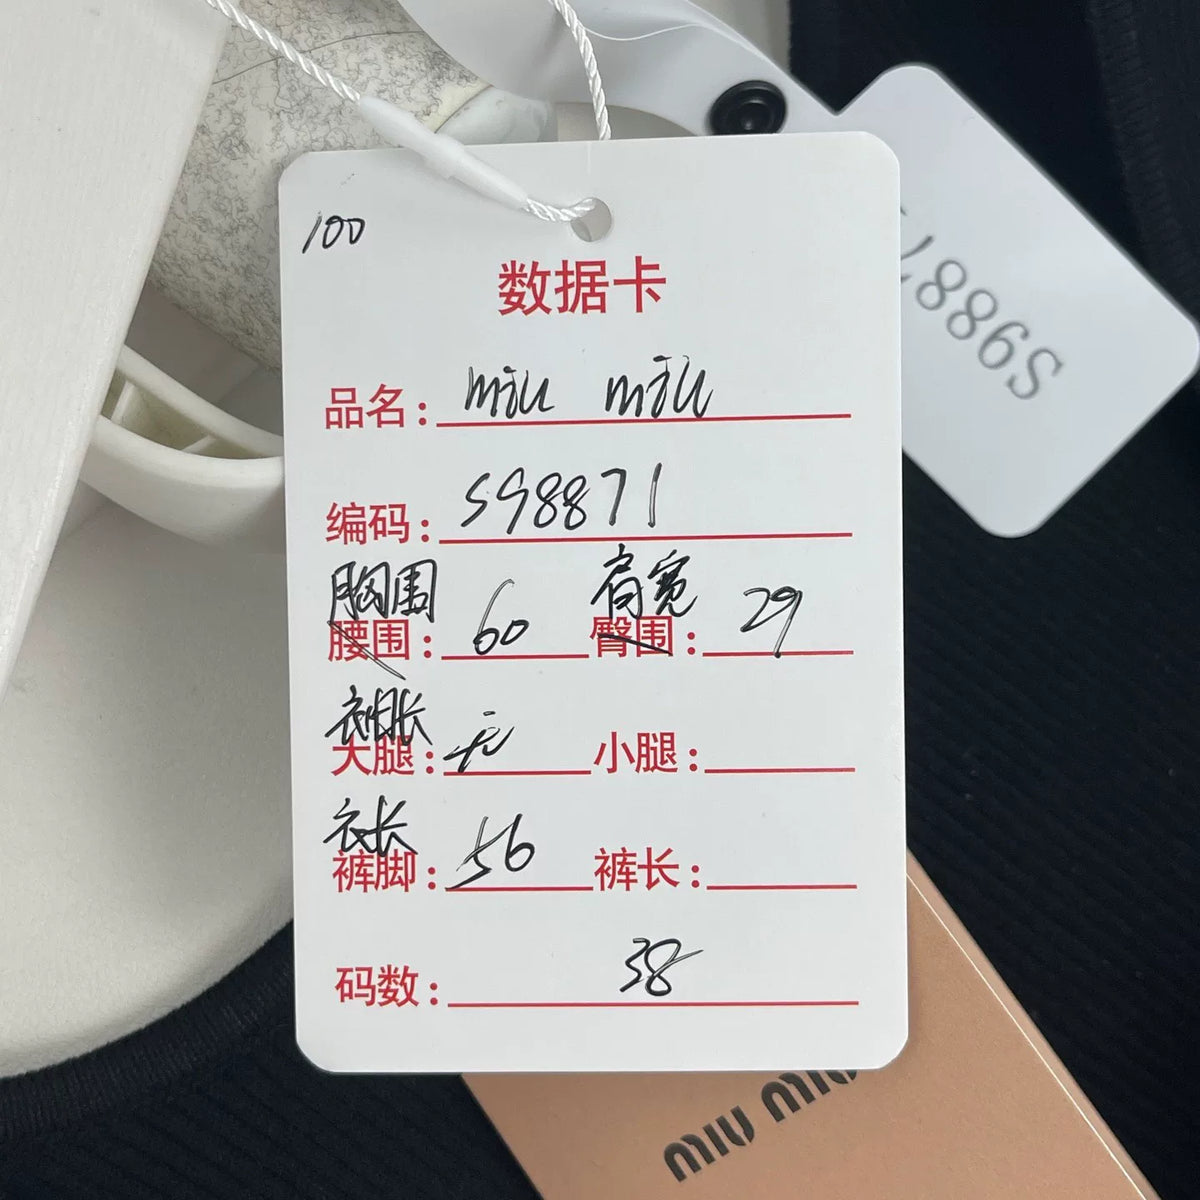 100
数据卡
品名: miu miu
编码: S98871
胸围 肩宽
腰围: 60 臀围: 29
衣袖长
大腿: 无 小腿:
衣长
裤脚: 56 裤长:
码数: 38
S9887
MIU MIU